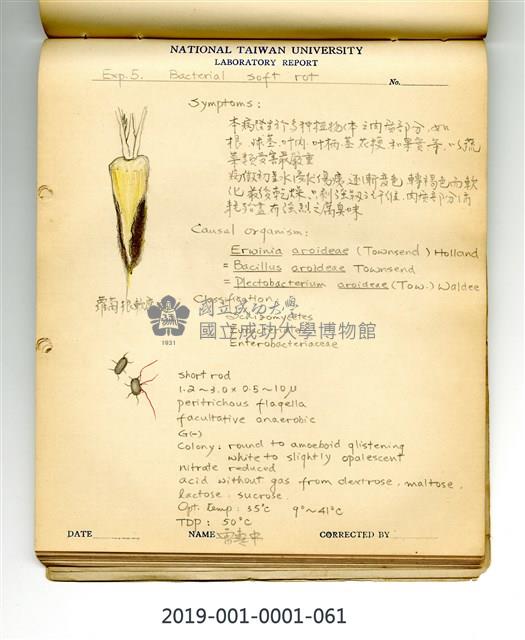 NATIONAL TAIWAN UNIVERSITY
LABORATORY REPORT
Exp.5. Bacterial soft rot No.
Symptoms:
本病發生於多种植物体之內部部分, 如
根. 球莖. 叶肉. 叶柄. 莖. 花梗 和果實等. 以蔬
菜類受害最嚴重
病徵初呈水漬狀傷痍, 逐漸變色 轉褐色而軟
化. 最後乾燥. 只剩強韌之纤維. 內容部分消
耗殆盡. 有強烈之腐臭味
Causal organism:
Erwinia aroideae (Townsend) Holland
= Bacillus aroideae Townsend
= Plectobacterium aroideae (Tow.) Waldee
蘿蔔根軟腐
Classification
Schizomycetes
Enterobacteriaceae
國立成功大學
國立成功大學博物館
1931
short rod
1.2~3.0 x 0.5~10 µ
peritrichous flagella
facultative anaerobic
G(-)
Colony: round to amoeboid glistening
white to slightly opalescent
nitrate reduced
acid without gas from dextrose. maltose.
lactose. sucrose.
Opt. temp: 35°C 9°~41°C
TDP: 50°C
DATE NAME CORRECTED BY
2019-001-0001-061